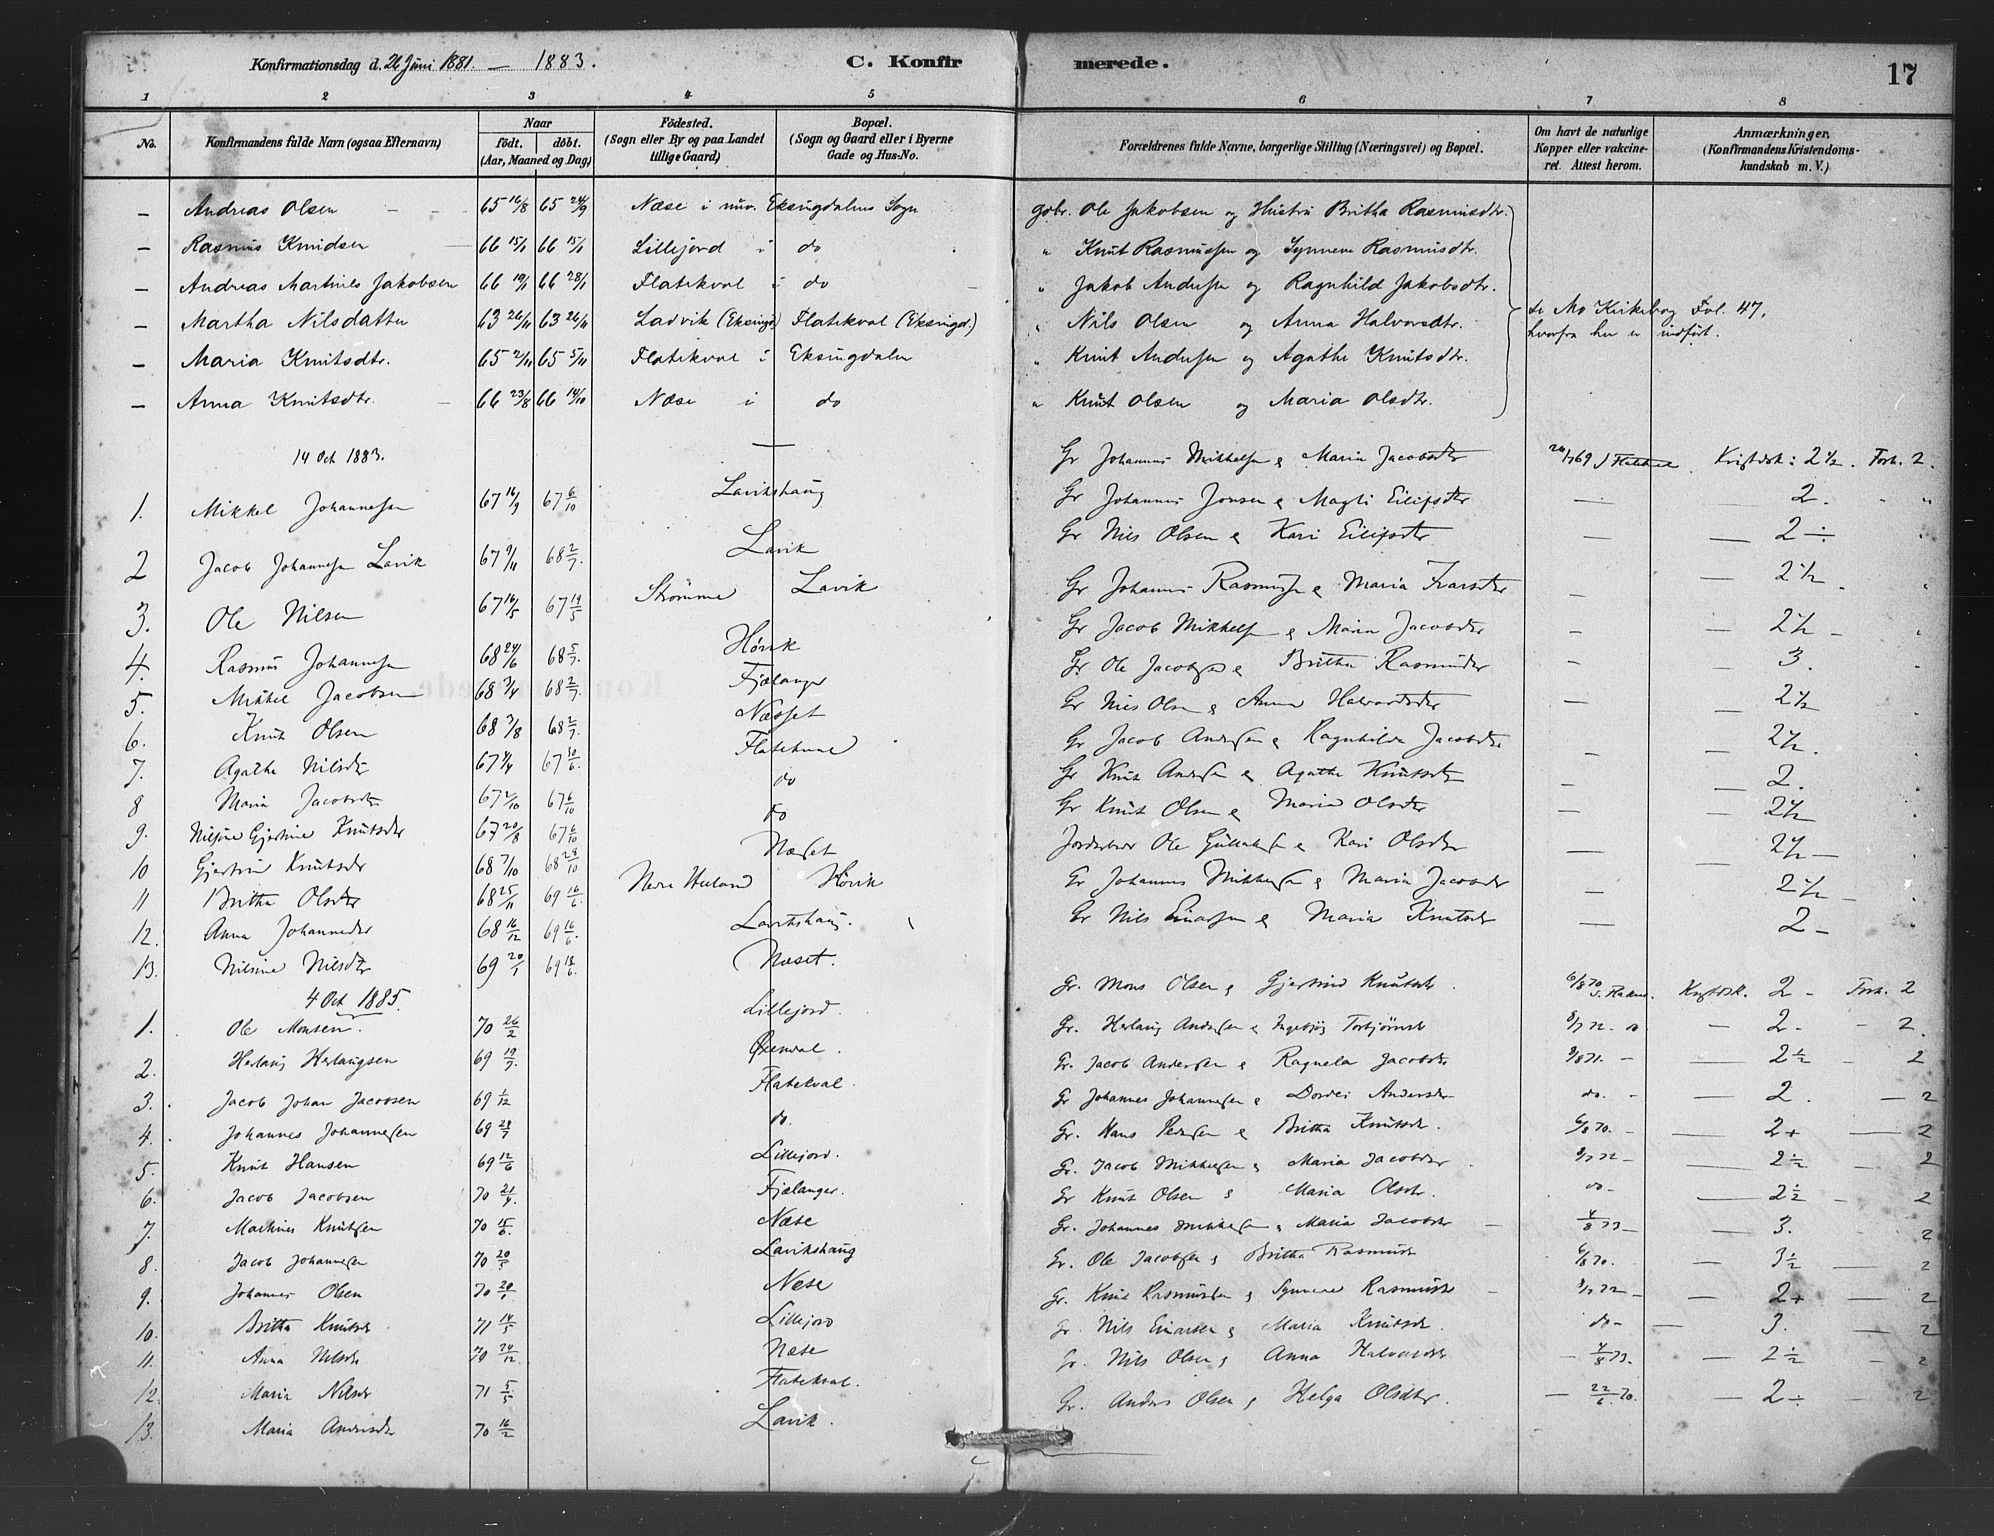 Konfirmationsdag d. 26 Juni 1881. — 1883.
C. Konfirmerede.
17
1 2 3 4 5 6 7 8
No.
Konfirmandens fulde Navn (ogsaa Efternavn)
Naar født. døbt. (Aar, Maaned og Dag)
Fødested. (Sogn eller By og paa Landet tillige Gaard)
Bopæl. (Sogn og Gaard eller i Byerne Gade og Hus-No.
Forældrenes fulde Navne, borgerlige Stilling (Næringsvei) og Bopæl.
Om havt de naturlige Kopper eller vaccineret. Attest herom.
Anmærkninger, (Konfirmandens Kristendomskundskab m. V.)
— Andreas Olsen 65 16/8 65 24/9 Næse i nuv. Eksingdalens Sogn gbr. Ole Jakobsen og Hustru Britha Rasmusdtr.
— Rasmus Knudsen 66 15/1 66 15/1 Lillejord i do " Knut Rasmussen og Synneva Rasmusdtr.
— Andreas Martines Jakobsen 66 19/1 66 28/1 Flatekval i do " Jakob Andersen og Ragnhild Jakobsdtr.
— Martha Nilsdatter 63 26/11 63 26/11 Ladvik (Eksingd) Flatekval (Eksingd.) " Nils Olsen og Anna Halvorsdtr. se Mo Kirkebog Fol. 47, hvorfra her er indført.
— Maria Knutsdtr. 65 2/11 65 5/11 Flatekval i Eksingdalen " Knut Andersen og Agathe Knutsdtr.
— Anna Knutsdtr. 66 23/8 66 14/10 Næse i do " Knut Olsen og Maria Olsdtr.
14 Oct 1883.
1. Mikkel Johannessen 67 16/9 67 6/10 Lavikshaug Gr Johannes Mikkelsen & Maria Jacobsdtr Kristdsk: 2 1/2. Forh. 2.
2 Jacob Johannessen Lavik 67 9/11 68 2/7 Lavik Gr Johannes Jonsen & Magli Eilifsdtr — 2. "
3. Ole Nilsen 67 16/5 67 19/5 Strømme Lavik Gr Nils Olsen & Kari Eilifsdtr — — 2 ÷
4. Rasmus Johannessen 68 24/6 68 5/7 Høvik Gr Johannes Rasmussen & Maria Ivarsdtr — — 2 1/2
5. Mikkel Jacobsen 68 3/4 68 2/7 Fjælanger Gr Jacob Mikkelsen & Maria Jacobsdtr — — 2 1/2 —
6. Knut Olsen 68 3/8 68 2/7 Næsset Gr. Ole Jacobsen & Britha Rasmusdtr — — 3.
7. Agathe Nilsdtr 67 4/4 67 10/6 Flatekval Gr Nils Olsen & Anna Halvorsdtr — — 2 1/2
8 Maria Jacobsdtr 67 2/10 67 6/10 do Gr Jacob Andersen & Ragnhilda Jacobsdtr — — 2 1/2.
9. Nilsine Gjertine Knutsdtr 67 20/8 67 6/10 do Gr Knut Andersen & Agathe Knutsdtr — — 2.
10 Gjertine Knutsdtr 68 7/10 68 28/10 Næset Gr Knut Olsen & Maria Olsdtr — — 2 1/2
11 Britha Olsdtr 68 25/11 69 16/6 Høvik Ole & Kari Olsdtr — — 2 1/2 —
12. Anna Johannesdtr 68 16/12 69 16/6 Lavikshaug. Gr Johannes Mikkelsen & Maria Jacobsdtr — — 2 1/2 —
13. Nilsine Nilsdtr 69 20/1 69 18/6 Næset. Gr Nils Einarsen & Maria Knutsdtr — — 2 —
4 Oct 1885.
1. Ole Monsen. 70 26/2 Lillejord. Gr. Mons Olsen & Gjertrud Knutsdtr. 6/8 70 Kristdsk. 2 — Forh. 2
2. Herlaug Herlaugsen 69 19/7 Øxendal. Gr. Herlaug Andersen & Ingebjørg Torbjørnsdtr 8/7 72. — 2. — 2.
3. Jacob Johan Jacobsen 69 1/12 Flatekval. Gr. Jacob Andersen & Ragnela Jacobsdtr 9/8 71. — — 2 1/2 — 2
4. Johannes Johannesen 69 28/7 do. Gr Johannes Johannesen & Dordei Andersdtr do. — — 2. — 2
5. Knut Hansen 69 12/6 Lillejord. Gr. Hans Pedersen & Britha Knutsdtr. 6/8 70. — — 2+ — 2
6. Jacob Jacobsen 70 21/4. Fjælanger. Gr. Jacob Mikkelsen & Maria Jacobsdtr 8/7 72 — — 2 1/2 — 2
7. Martines Knutsen 70 15/6. Næse Gr Knut Olsen & Maria Olsdtr. do — — 2 1/2 — 2
8. Jacob Johannesen 70 20/5 Lavikshaug Gr. Johannes Mikkelsen & Maria Jacobsdtr 4/8 73 — 3. 2
9. Johannes Olsen 70 20/1 Næse Gr. Ole Jacobsen & Britha Rasmusdtr 6/8 70. — 3 1/2 — 2
10. Britha Knutsdtr 71 14/5 Lillejord Gr. Knut Rasmussen & Synneve Rasmusdtr 8/7 72 — — 2+ — 2
11. Anna Nilsdtr 70 24/12 Næse Gr. Nils Einarsen & Maria Knutsdtr. do — — 3. — 2
12. Maria Nilsdtr 71 5/5 Flatekval. Gr. Nils Olsen & Anna Halvorsdtr — 4/8 73. — 2 1/2 — 2
13. Maria Andersdtr 70 16/2 Lavik. Gr. Anders Olsen & Helga Olsdtr. — 22/6 70. — 2 ÷ — 2